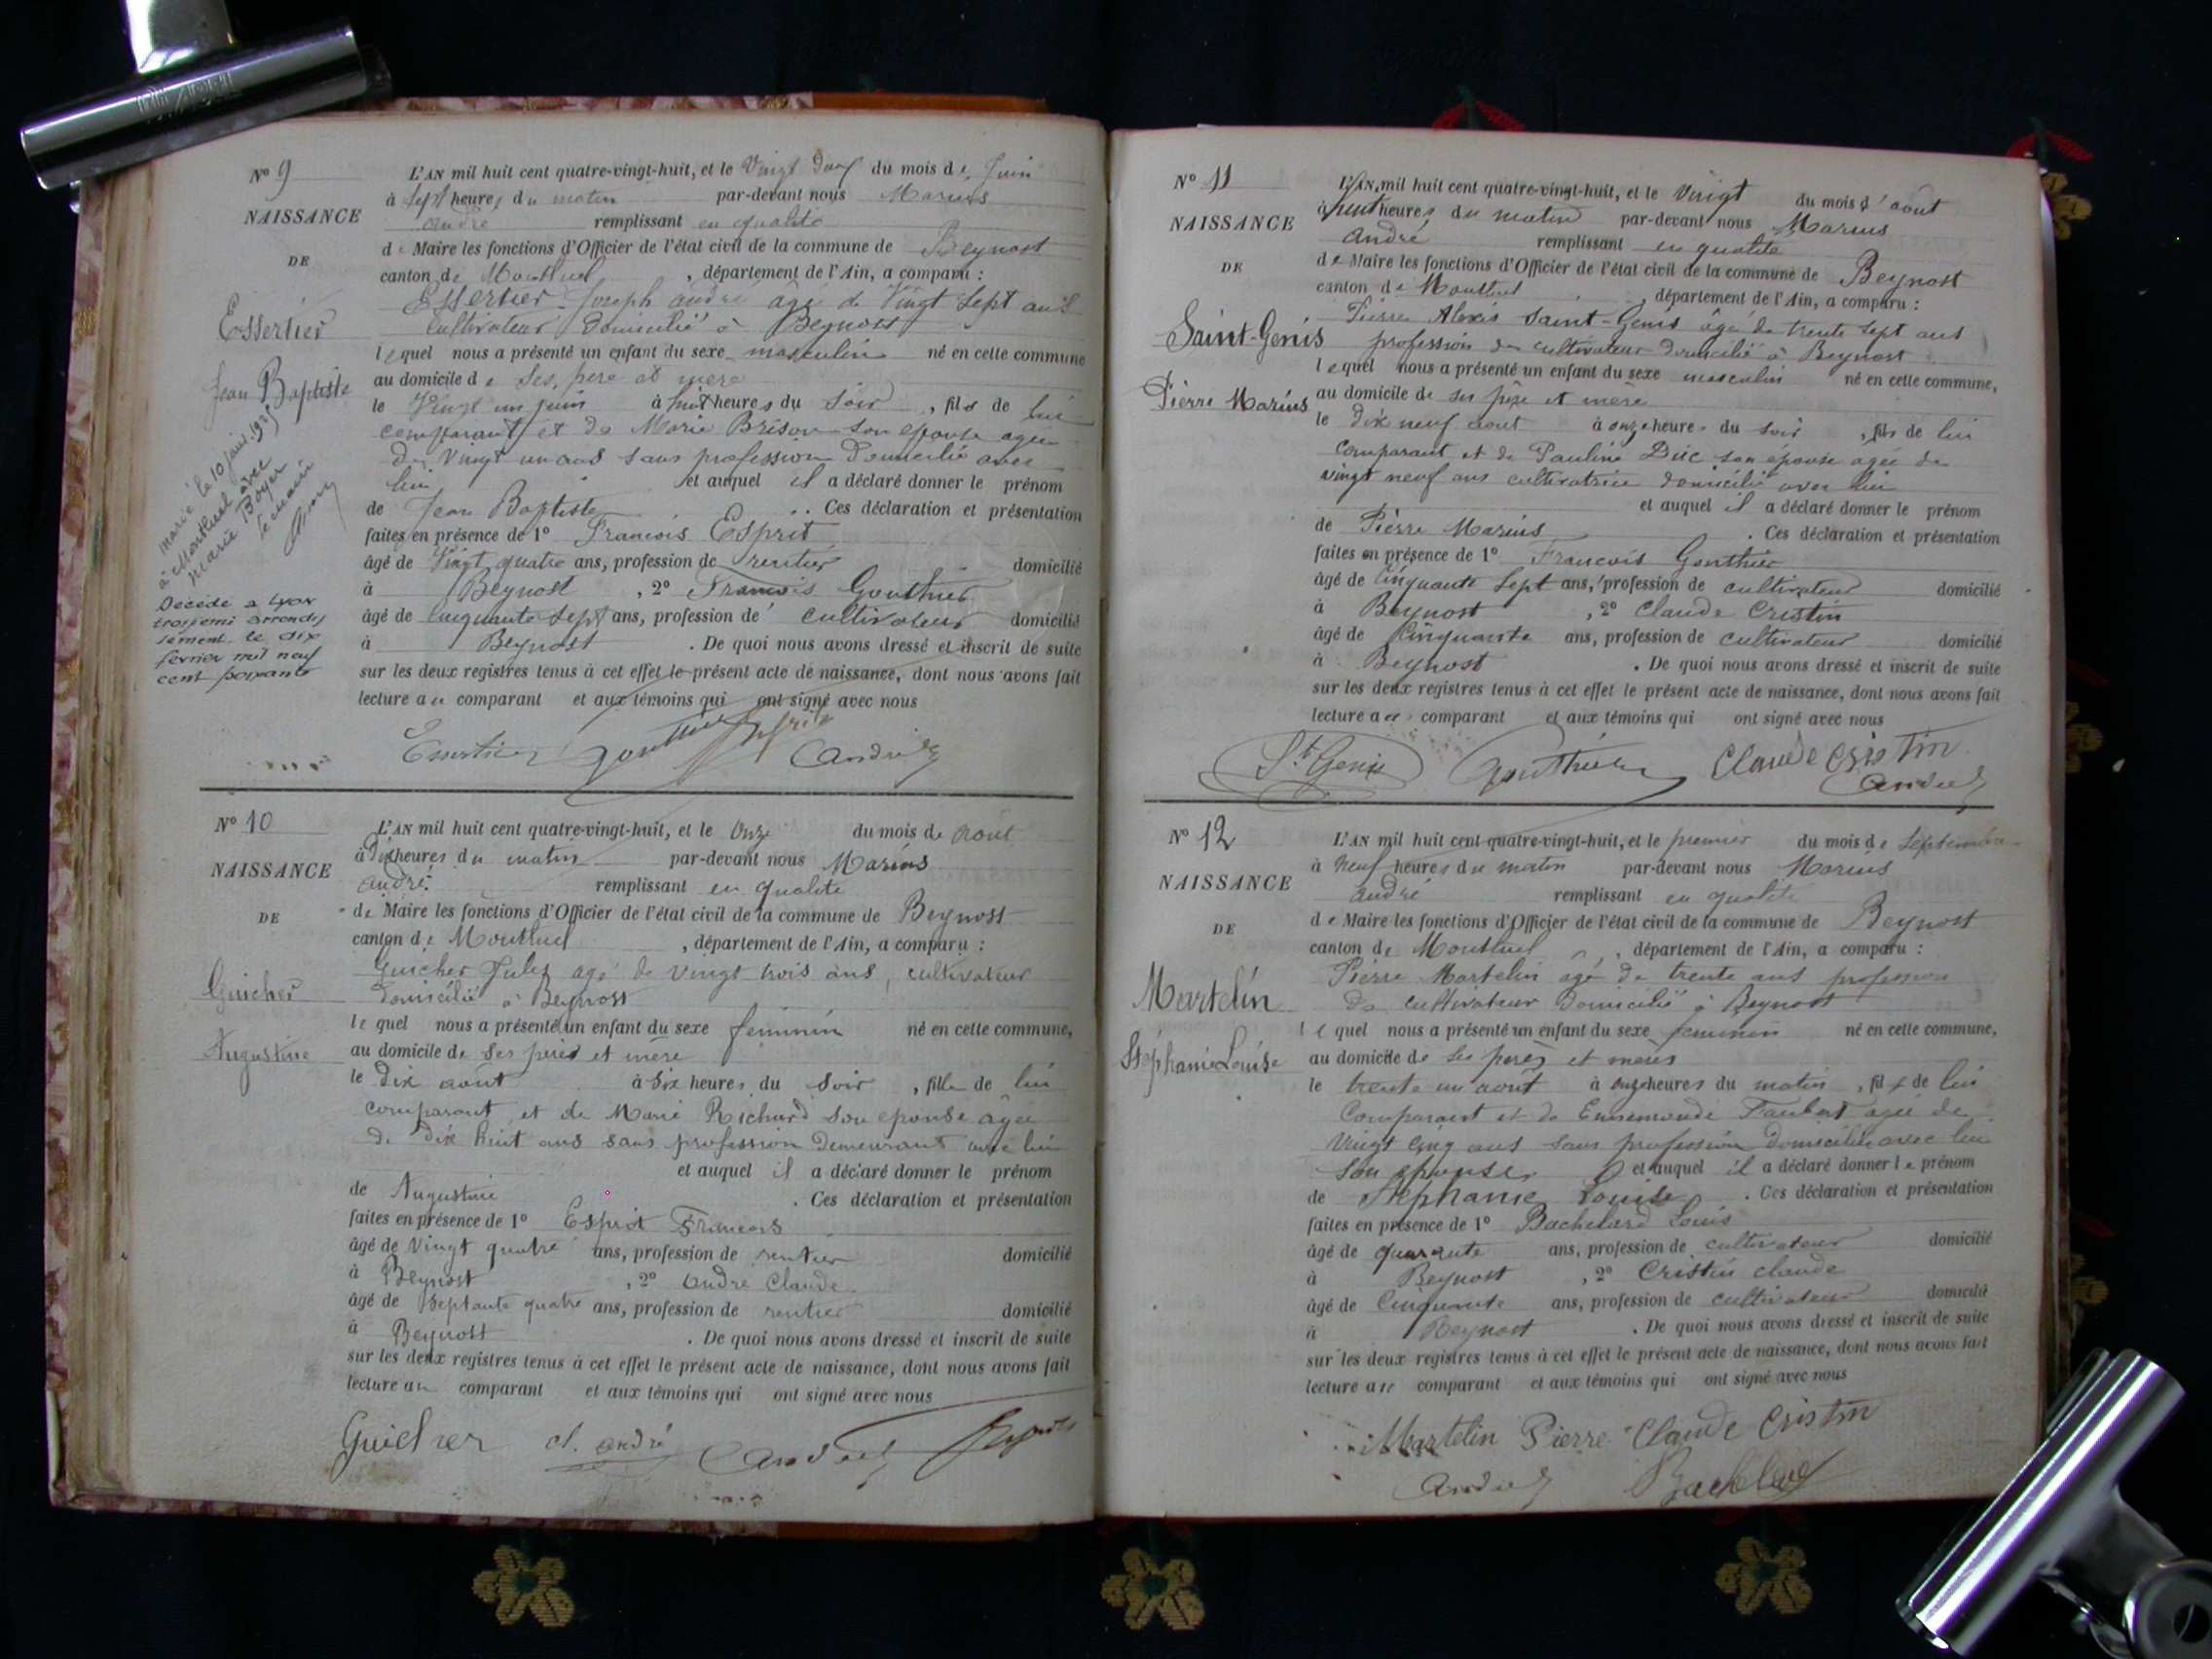 N° 9
NAISSANCE
DE
Essertier
Jean Baptiste
marié le 10 juin
à Montluel avec
Marie Boyer
le maire
Décédé a Lyon
troisiemi arrondis
sement le dix
fevrier mil neuf
cent soixante
L'AN mil huit cent quatre-vingt-huit, et le Vingt deux du mois de Juin
à sept heures du matin par-devant nous Marius
andré remplissant en qualité
de Maire les fonctions d'Officier de l'état civil de la commune de Beynost
canton de Montluel, département de l'Ain, a comparu :
Essertier Joseph andré âgé de Vingt Sept ans
Cultivateur domicilié à Beynost
lequel nous a présenté un enfant du sexe masculin né en cette commune
au domicile de Ses père et mère
le Vingt un juin à huit heures du soir, fils de lui
comparant et de Marie Brison son épouse agée
de vingt un ans sans profession Domicilié avec
lui et auquel il a déclaré donner le prénom
de Jean Baptiste. Ces déclaration et présentation
faites en présence de 1° François Esprit
âgé de Vingt quatre ans, profession de rentier domicilié
à Beynost, 2° François Gonthier
âgé de Cinquante Sept ans, profession de cultivateur domicilié
à Beynost. De quoi nous avons dressé et inscrit de suite
sur les deux registres tenus à cet effet le présent acte de naissance, dont nous avons fait
lecture au comparant et aux témoins qui ont signé avec nous
Essertier Gonthier Esprit
André
N° 10
NAISSANCE
DE
Guicher
Augustine
L'AN mil huit cent quatre-vingt-huit, et le Onze du mois de Aout
à Dix heures du matin par-devant nous Marius
andré remplissant en qualité
de Maire les fonctions d'Officier de l'état civil de la commune de Beynost
canton de Montluel, département de l'Ain, a comparu :
Guicher Jules agé de vingt trois ans, cultivateur
domicilié à Beynost
lequel nous a présenté un enfant du sexe feminin né en cette commune,
au domicile de Ses père et mère
le dix août à Six heures du Soir, fille de lui
comparant et de Marie Richard son epouse âgée
de dix huit ans sans profession Demeurant avec lui
et auquel il a déclaré donner le prénom
de Augustine. Ces déclaration et présentation
faites en présence de 1° Esprit Francois
âgé de Vingt quatre ans, profession de rentier domicilié
à Beynost, 2° andré Claude
âgé de Septante quatre ans, profession de rentier domicilié
à Beynost. De quoi nous avons dressé et inscrit de suite
sur les deux registres tenus à cet effet le présent acte de naissance, dont nous avons fait
lecture au comparant et aux témoins qui ont signé avec nous
Guicher cl. andré André Esprit
N° 11
NAISSANCE
DE
Saint-Genis
Pierre Marius
L'AN mil huit cent quatre-vingt-huit, et le Vingt du mois d'aout
à huit heures du matin par-devant nous Marius
André remplissant en qualité
de Maire les fonctions d'Officier de l'état civil de la commune de Beynost
canton de Montluel, département de l'Ain, a comparu :
Pierre Alexis Saint-Genis âgé de trente sept ans
profession de cultivateur domicilié à Beynost
lequel nous a présenté un enfant du sexe masculin né en cette commune,
au domicile de ses père et mère
le dix neuf aout à onze heures du soir, fils de lui
comparant et de Pauline Duc son épouse agée de
vingt neuf ans cultivatrice domicilié avec lui
et auquel il a déclaré donner le prénom
de Pierre Marius. Ces déclaration et présentation
faites en présence de 1° Francois Gonthier
âgé de Cinquante Sept ans, profession de cultivateur domicilié
à Beynost, 2° Claude Cristin
âgé de Cinquante ans, profession de cultivateur domicilié
à Beynost. De quoi nous avons dressé et inscrit de suite
sur les deux registres tenus à cet effet le présent acte de naissance, dont nous avons fait
lecture au comparant et aux témoins qui ont signé avec nous
St Genis Gonthier Claude Cristin
André
N° 12
NAISSANCE
DE
Martelin
Stéphanie Louise
L'AN mil huit cent quatre-vingt-huit, et le premier du mois de Septembre
à Neuf heures du matin par-devant nous Marius
André remplissant en qualité
de Maire les fonctions d'Officier de l'état civil de la commune de Beynost
canton de Montluel, département de l'Ain, a comparu :
Pierre Martelin âgé de trente ans profession
de cultivateur domicilié à Beynost
lequel nous a présenté un enfant du sexe feminin né en cette commune,
au domicile de Ses perès et merès
le trente un aout à onze heures du matin, fil de lui
Comparant et de Ennemonde Faubert agée de
Vingt cinq ans sans profession domiciliée avec lui
Son epouse et auquel il a déclaré donner le prénom
de Stéphanie Louise. Ces déclaration et présentation
faites en présence de 1° Bachelard Louis
âgé de quarante ans, profession de cultivateur domicilié
à Beynost, 2° Cristin claude
âgé de Cinquante ans, profession de cultivateur domicilié
à Beynost. De quoi nous avons dressé et inscrit de suite
sur les deux registres tenus à cet effet le présent acte de naissance, dont nous avons fait
lecture au comparant et aux témoins qui ont signé avec nous
Martelin Pierre Claude Cristin
André Bachelard